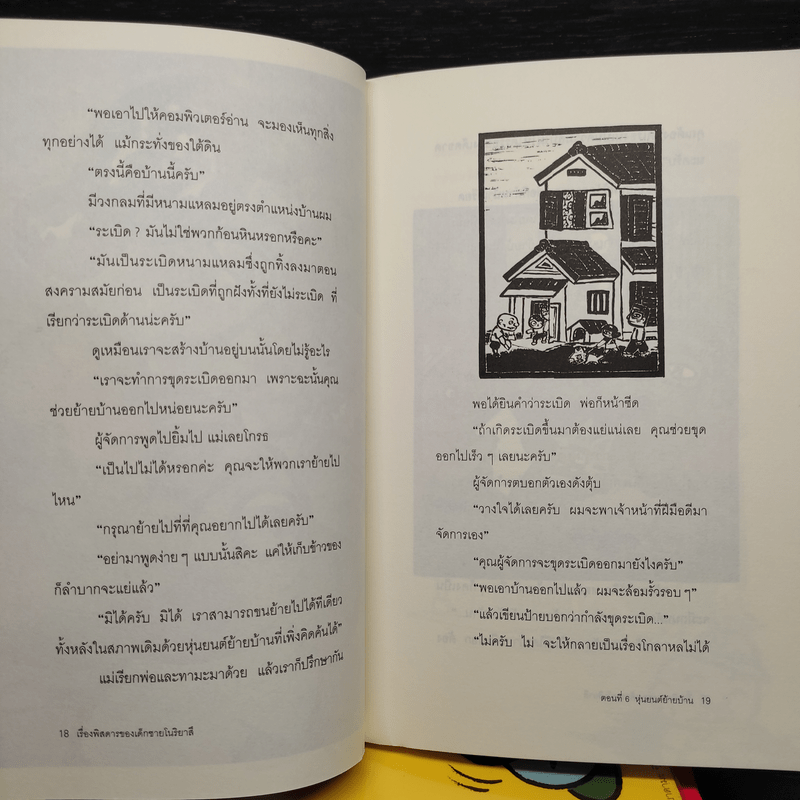 “พอเอาไปให้คอมพิวเตอร์อ่าน จะมองเห็นทุกสิ่ง
ทุกอย่างได้ แม้กระทั่งของใต้ดิน
“ตรงนี้คือบ้านนี้ครับ”
มีวงกลมที่มีหนามแหลมอยู่ตรงตำแหน่งบ้านผม
“ระเบิด ? มันไม่ใช่พวกก้อนหินหรอกหรือคะ”
“มันเป็นระเบิดหนามแหลมซึ่งถูกทิ้งลงมาตอน
สงครามสมัยก่อน เป็นระเบิดที่ถูกฝังทั้งที่ยังไม่ระเบิด ที่
เรียกว่าระเบิดด้านน่ะครับ”
ดูเหมือนเราจะสร้างบ้านอยู่บนนั้นโดยไม่รู้อะไร
“เราจะทำการขุดระเบิดออกมา เพราะฉะนั้นคุณ
ช่วยย้ายบ้านออกไปหน่อยนะครับ”
ผู้จัดการพูดไปยิ้มไป แม่เลยโกรธ
“เป็นไปไม่ได้หรอกค่ะ คุณจะให้พวกเราย้ายไป
ไหน”
“กรุณาย้ายไปที่ที่คุณอยากไปได้เลยครับ”
“อย่ามาพูดง่าย ๆ แบบนั้นสิคะ แค่ให้เก็บข้าวของ
ก็ลำบากจะแย่แล้ว”
“มิได้ครับ มิได้ เราสามารถขนย้ายไปได้ทีเดียว
ทั้งหลังในสภาพเดิมด้วยหุ่นยนต์ย้ายบ้านที่เพิ่งคิดค้นได้”
แม่เรียกพ่อและทามะมาด้วย แล้วเราก็ปรึกษากัน
18 เรื่องพิสดารของเด็กชายโนริยาสึ
พอได้ยินคำว่าระเบิด พ่อก็หน้าซีด
“ถ้าเกิดระเบิดขึ้นมาต้องแย่แน่เลย คุณช่วยขุด
ออกไปเร็ว ๆ เลยนะครับ”
ผู้จัดการตบอกตัวเองดังตุ้บ
“วางใจได้เลยครับ ผมจะพาเจ้าหน้าที่ฝีมือดีมา
จัดการเอง”
“คุณผู้จัดการจะขุดระเบิดออกมายังไงครับ”
“พอเอาบ้านออกไปแล้ว ผมจะล้อมรั้วรอบ ๆ”
“แล้วเขียนป้ายบอกว่ากำลังขุดระเบิด...”
“ไม่ครับ ไม่ จะให้กลายเป็นเรื่องโกลาหลไม่ได้
ตอนที่ 6 หุ่นยนต์ย้ายบ้าน 19